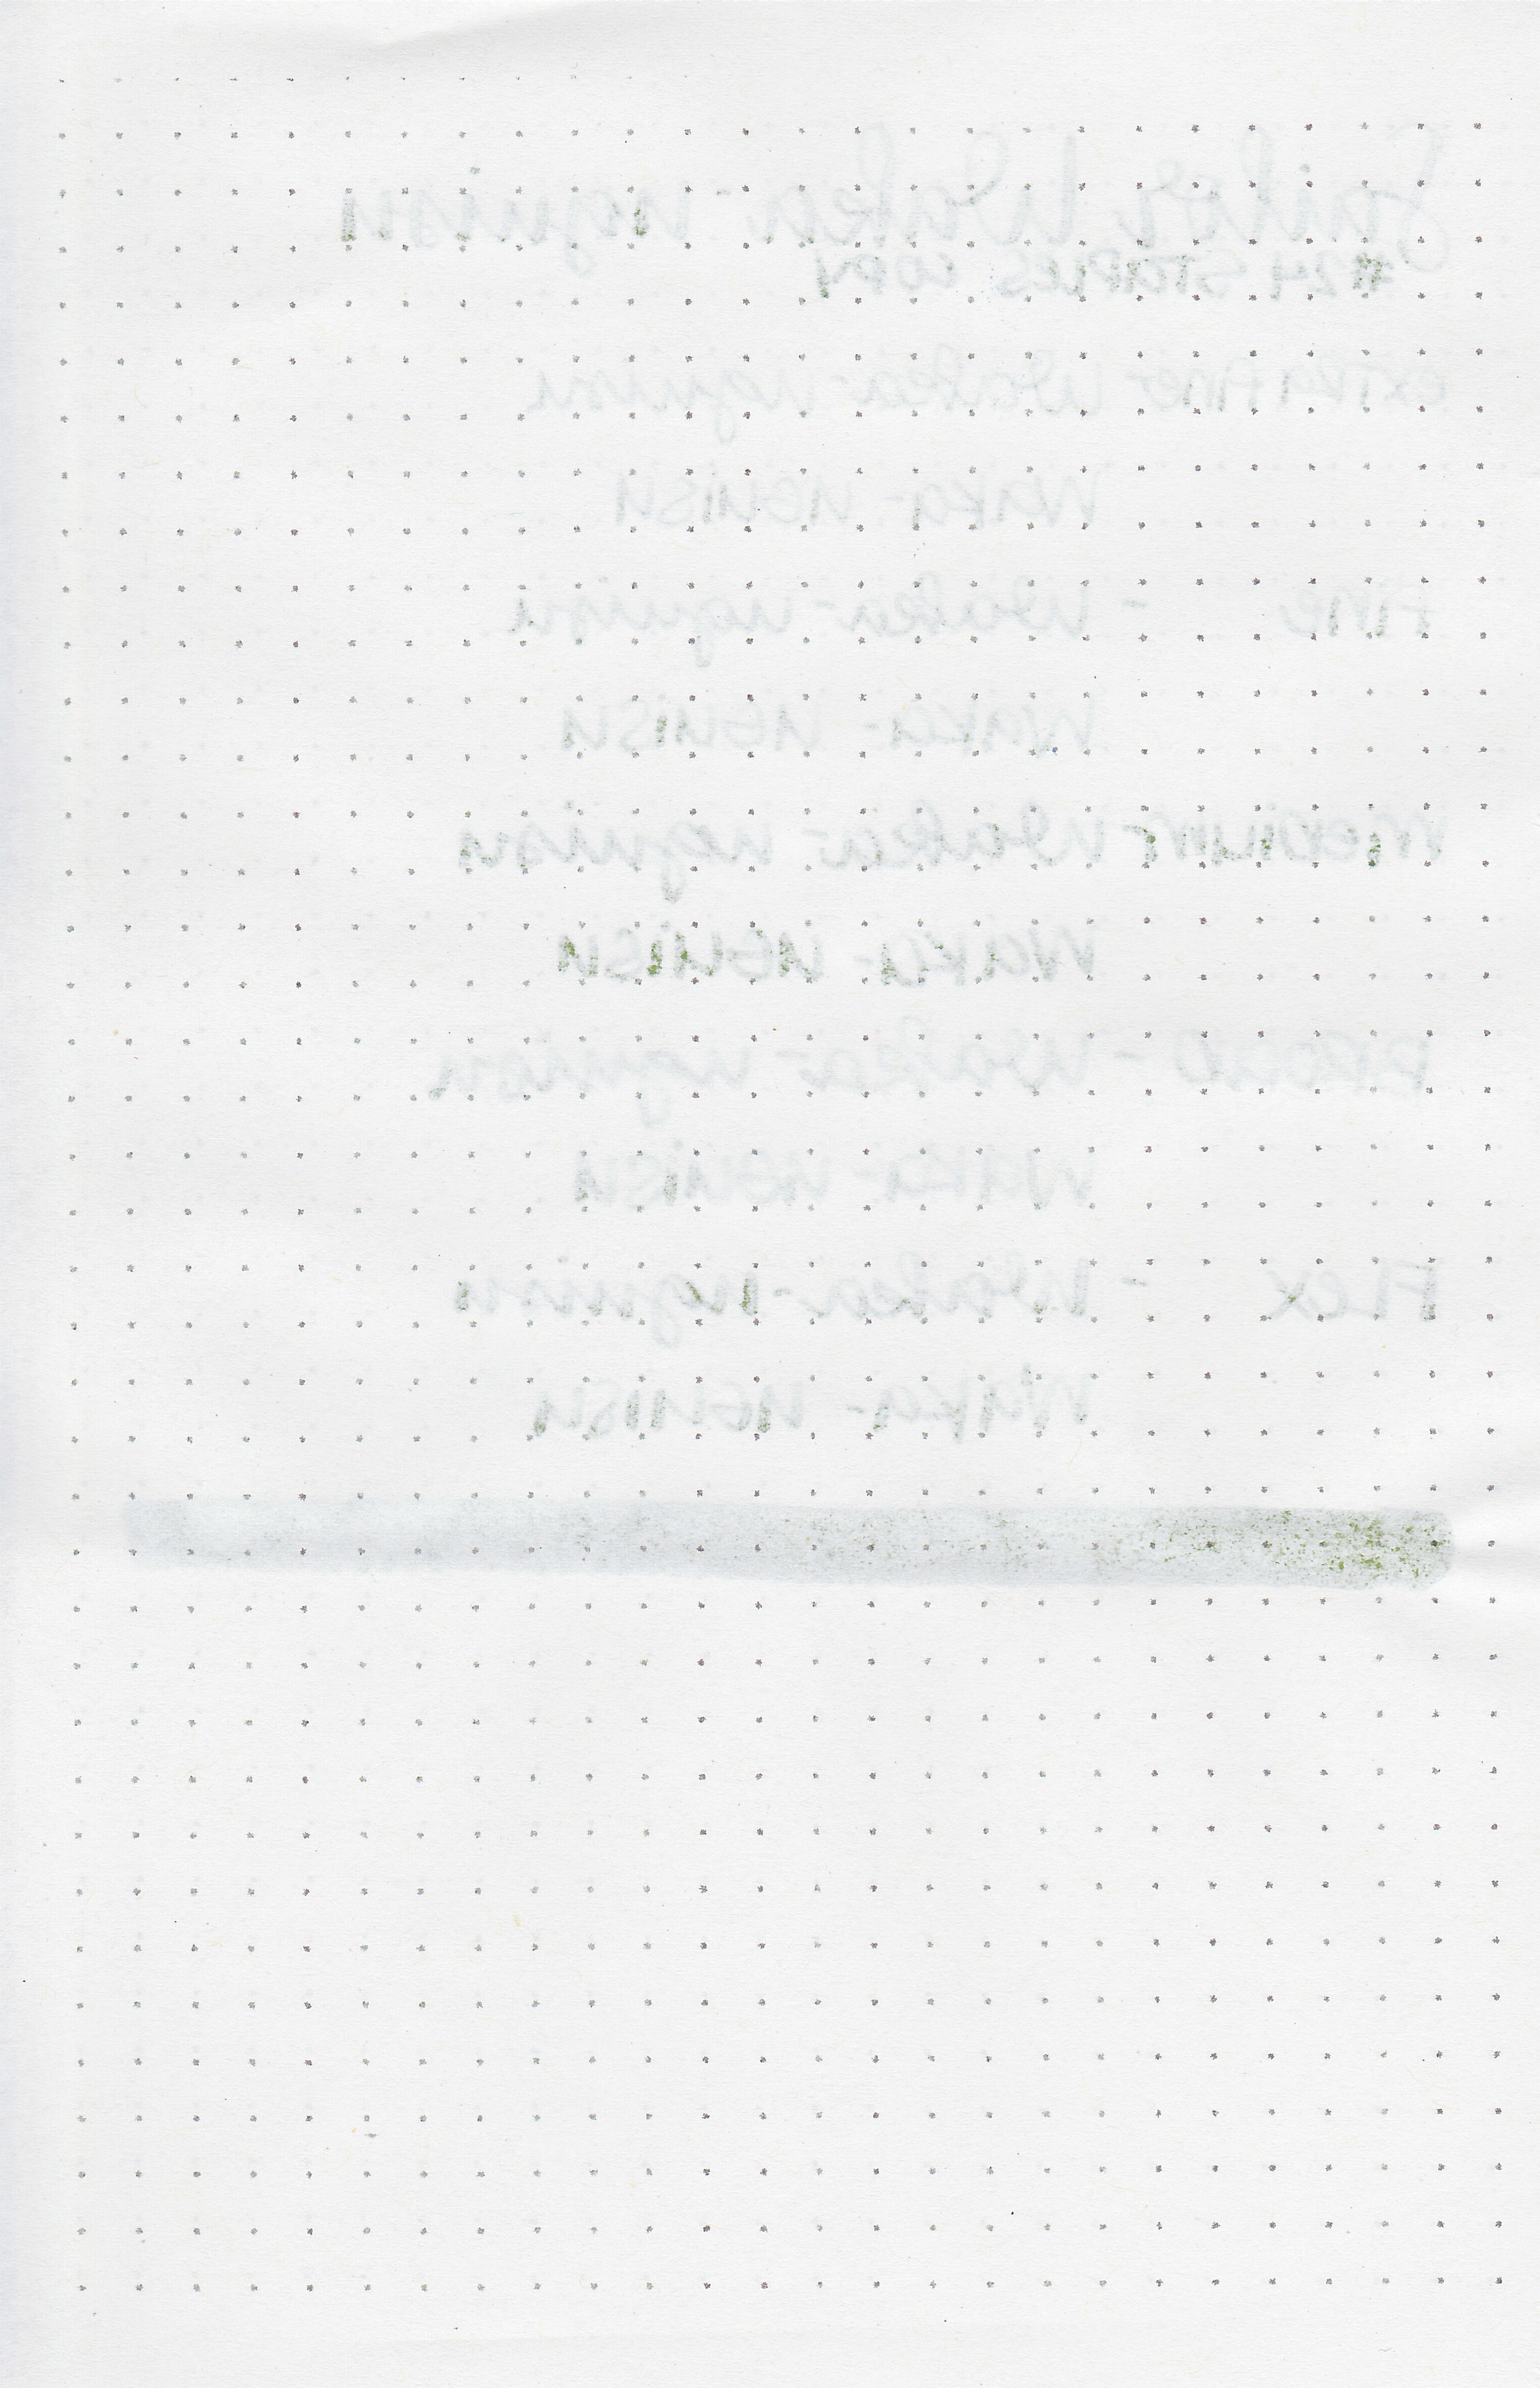 Sailor Waka-uguisu
#24 STAPLES COPY
EXTRA FINE- Waka-uguisu
WAKA-UGUISU
FINE - Waka-uguisu
WAKA-UGUISU
MEDIUM- Waka-uguisu
WAKA-UGUISU
BROAD - Waka-uguisu
WAKA-UGUISU
FLEX - Waka-uguisu
WAKA-UGUISU